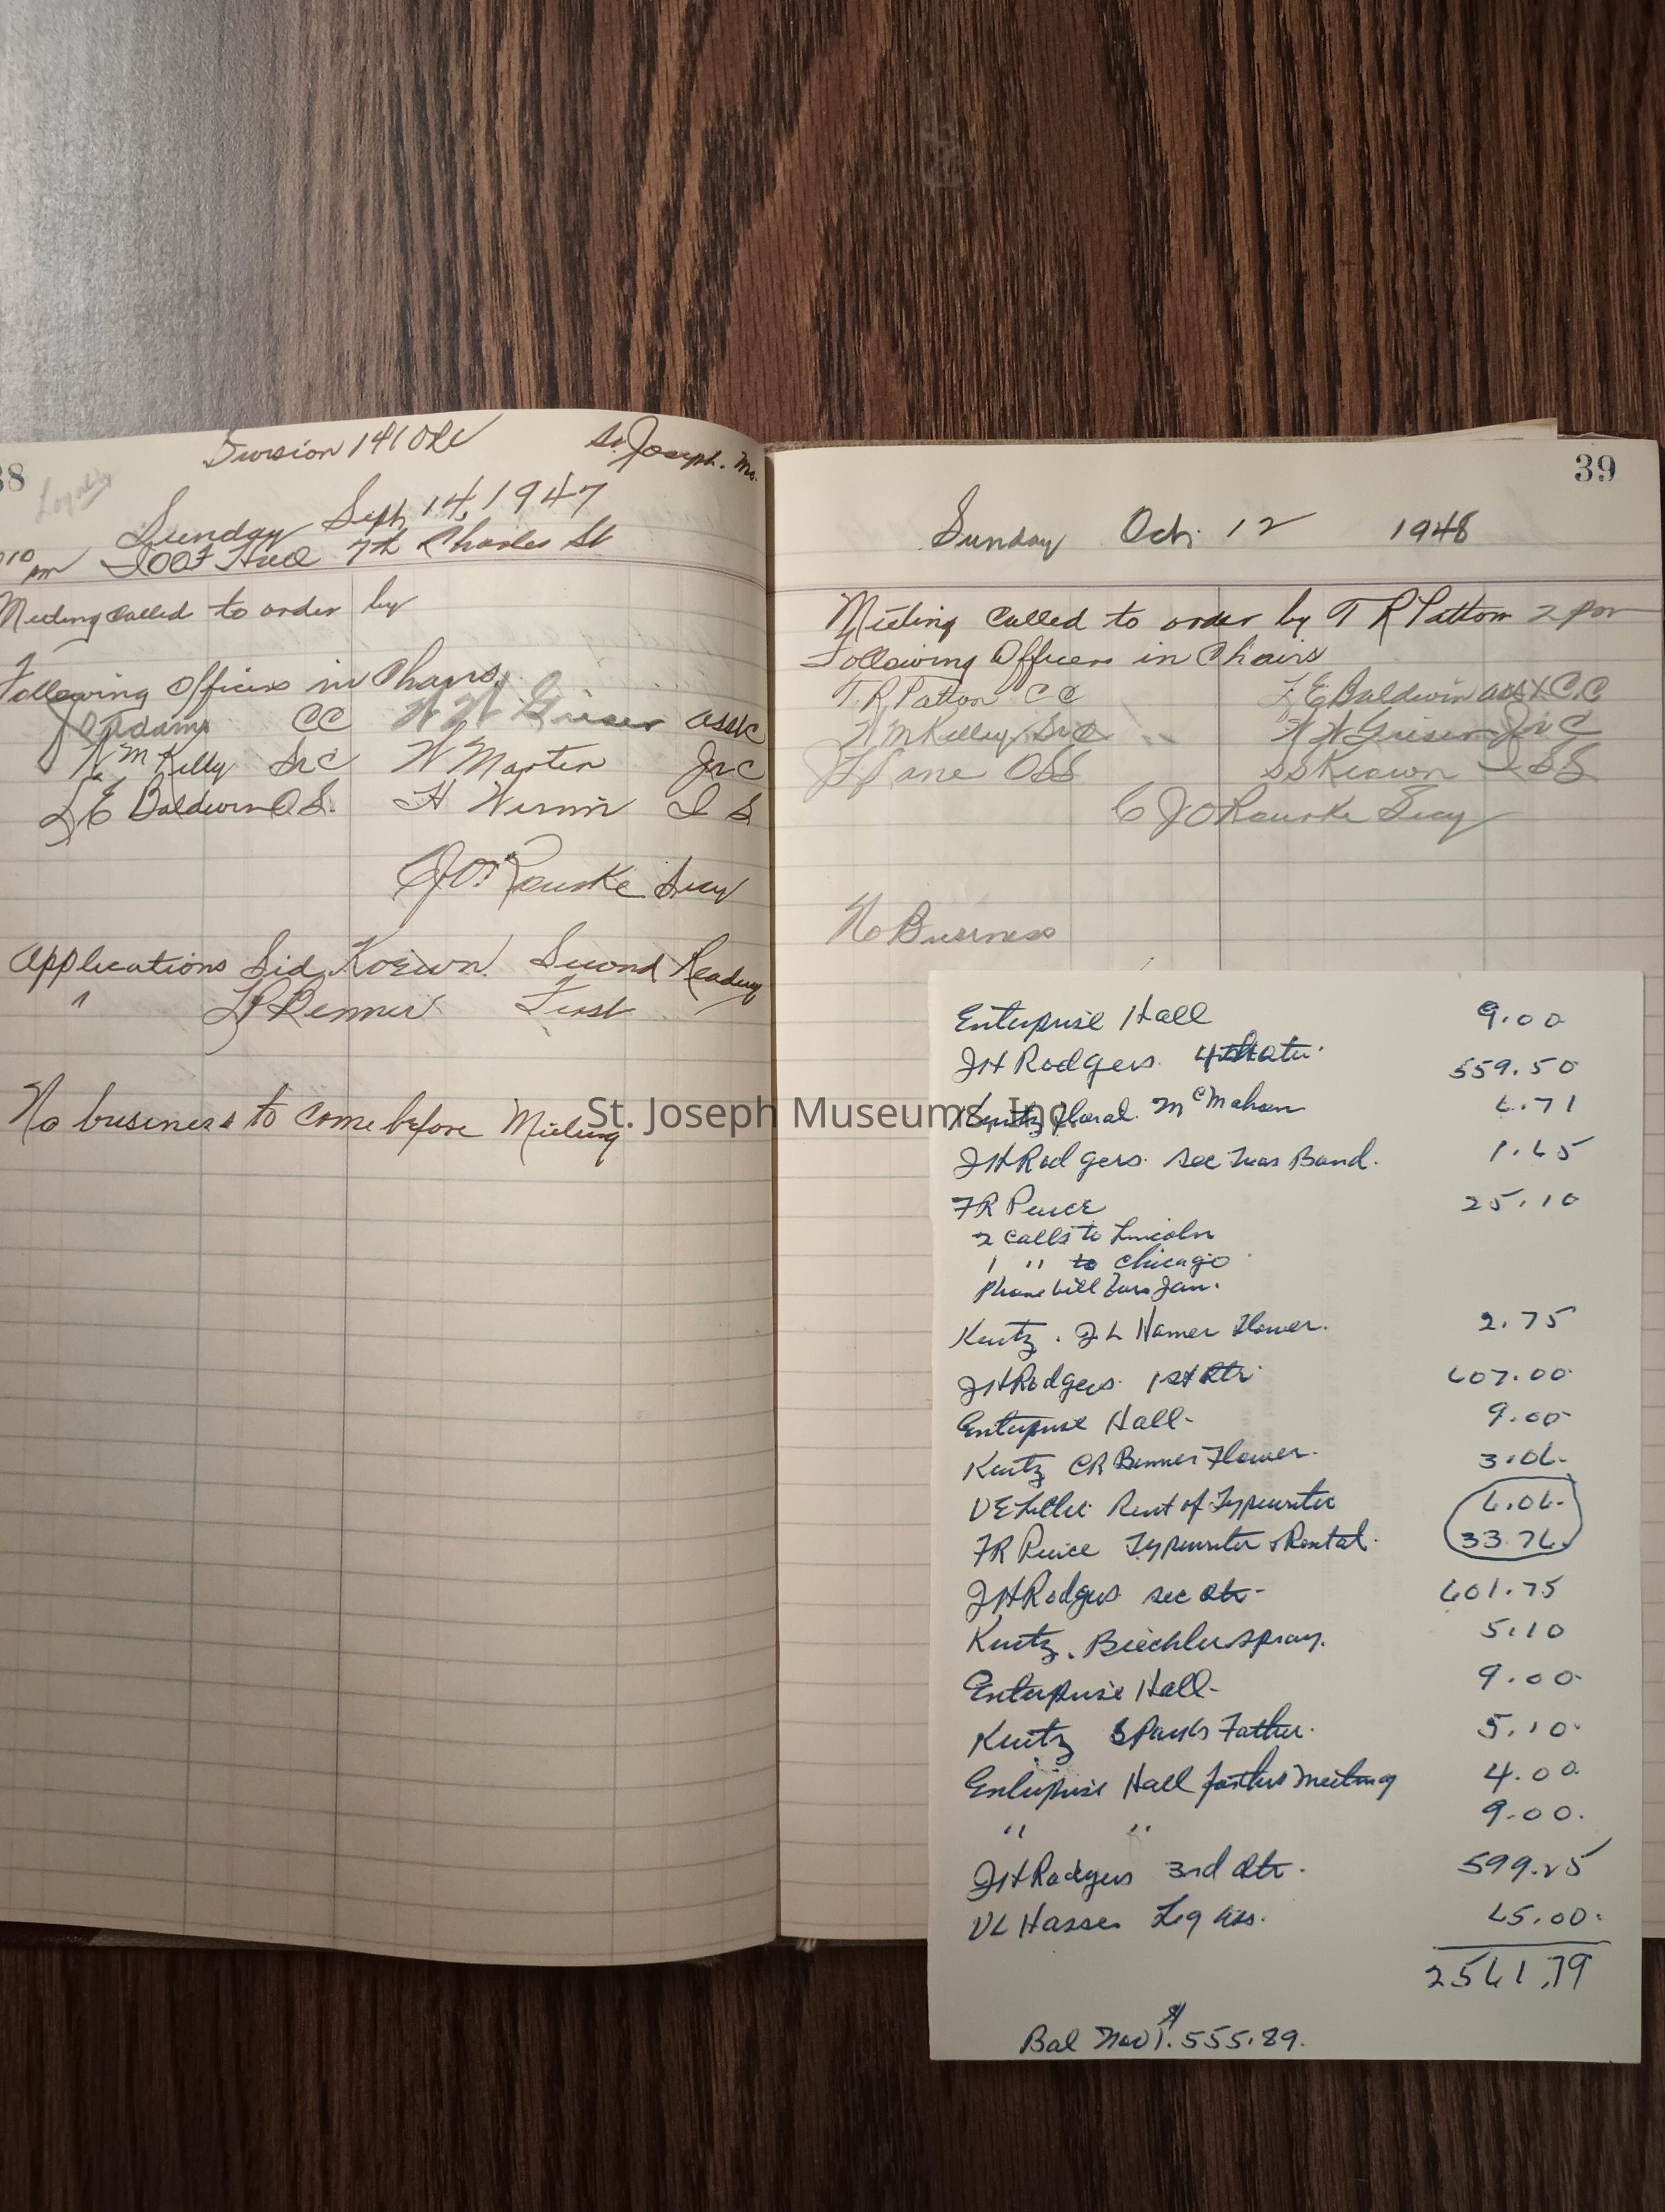 38
Division 141 ORC St. Joseph. Mo.
Loyalty
Sunday Sept 14, 1947
210 pm IOOF Hall 7th Charles St
Meeting Called to order by
Following Officers in Chairs.
J Adams CC W W Grieser ass CC
W M Kelly Sr C W Martin Jr C
L E Baldwin O S. H I S
C J O'Rourke Secy
Applications Sid Koewn. Second Reading
" Renner First "
No business to come before Meeting
39
Sunday Oct. 12 1948
Meeting Called to order by T R Patton 2 pm
Following Officers in Chairs
T. R Patton C C L E Baldwin asst C.C
W M Kelley Sr C W W Grieser Jr C
Lane O S S S S Keown I S S
C J O Rourke Secy
No Business
Enterprise Hall 9.00
JH Rodgers. 4th 559.50
Kurtz floral. McMahan 6.71
JH Rodgers. sec Treas Bond. 1.65
FR Peirce 25.10
2 calls to Lincoln
1 " to Chicago
Phone bill Jan.
Kurtz. J L Hamer Flower. 2.75
JH Rodgers. 1st Qtr. 607.00
Enterprise Hall- 9.00
Kurtz CR Benner Flower. 3.06.
V E Rent of Typewriter 6.06.
FR Peirce Typewriter & Rental. 33.76
JH Rodgers sec Qtr- 601.75
Kurtz. Biechler spray. 5.10
Enterprise Hall- 9.00
Kurtz Spark's Father. 5.10.
Enterprise Hall for this meeting 4.00.
" " 9.00.
JH Rodgers 3rd Qtr. 599.25
VL Hasse. Leg ass. 65.00.
2561.79
Bal Nov 1. $555.89.
St. Joseph Museums, Inc.